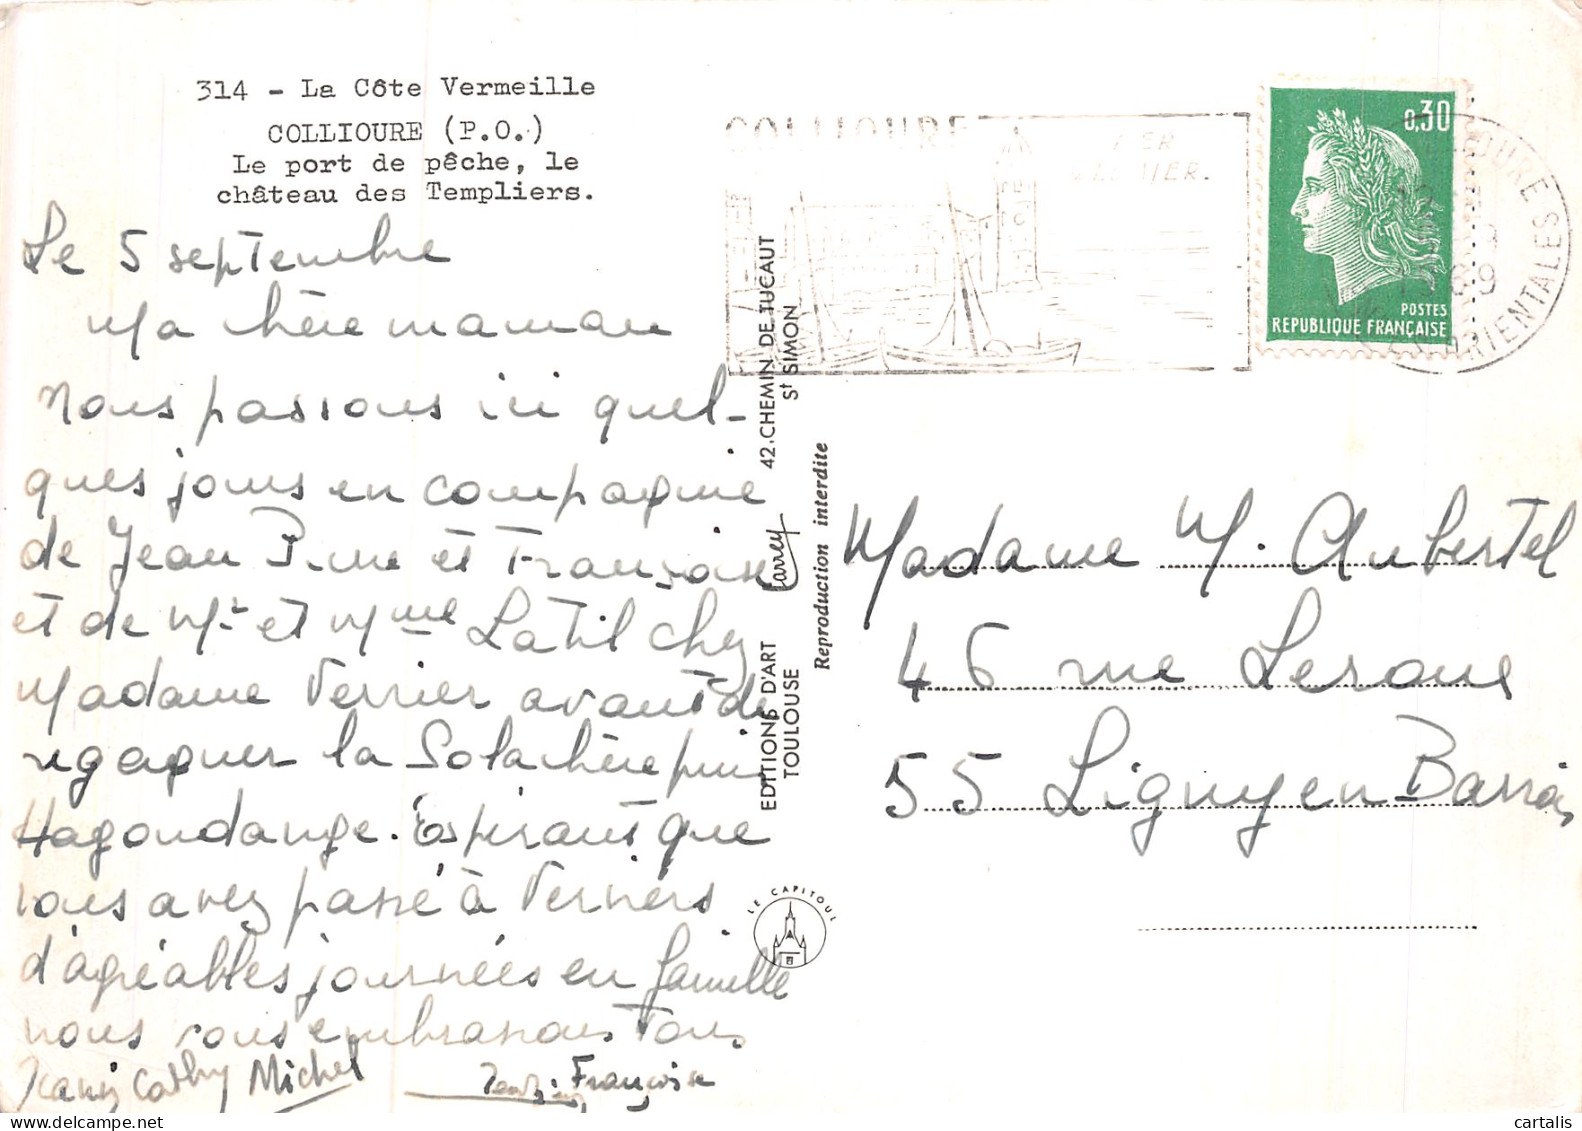 314 - La Côte Vermeille
COLLIOURE (P.O.)
Le port de pêche, le
château des Templiers.
Le 5 septembre
Ma chère maman
Nous passons ici quel-
ques jours en compagnie
de Jean Pierre et Françoise
et de Mr et Mme Latil chez
Madame Verrier avant de
regagner la Solachère puis
Hagondange. Espérant que
vous avez passé à Verriers
d'agréables journées en famille
nous vous embrassons tous
Cathy Michel
Françoise
COLLIOURE
0,30
POSTES
REPUBLIQUE FRANÇAISE
ORIENTALES
EDITIONS D'ART Larrey 42, CHEMIN DE TUCAUT
TOULOUSE St SIMON
Reproduction interdite
LE CAPITOUL
Madame M. Aubertel
46 rue Leroux
55 Ligny en Barrois
cartalis